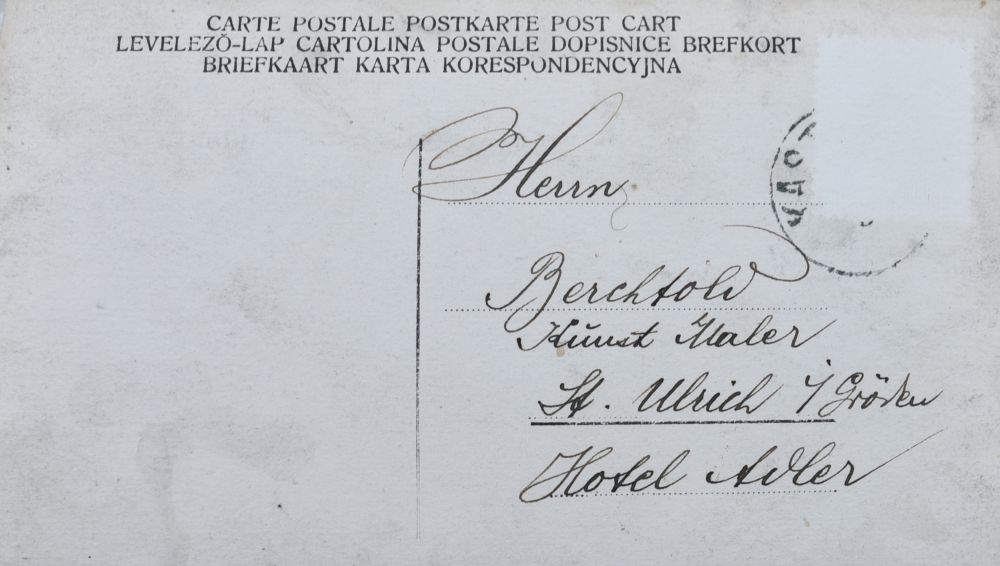 CARTE POSTALE POSTKARTE POST CART
LEVELEZŐ-LAP CARTOLINA POSTALE DOPISNICE BREFKORT
BRIEFKAART KARTA KORESPONDENCYJNA
Herrn
Berchtold
Kunst Maler
St. Ulrich i/ Gröden
Hotel Adler